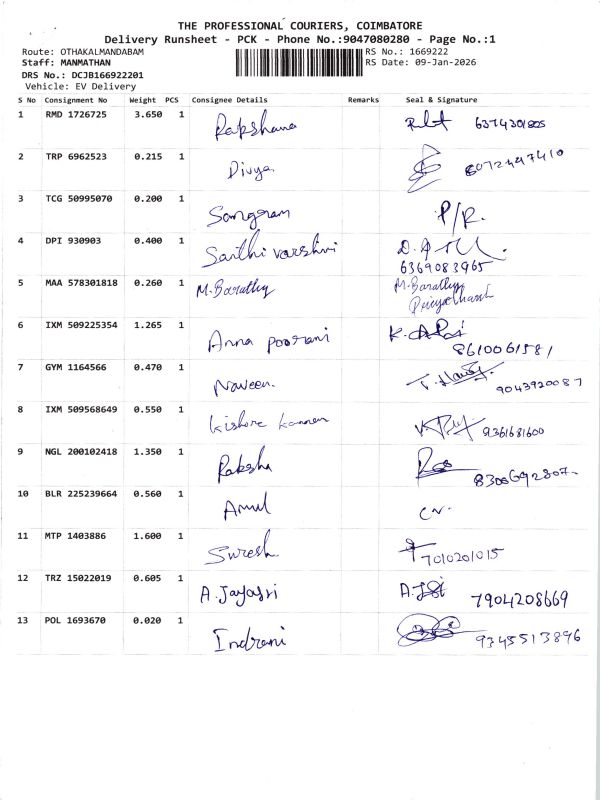 THE PROFESSIONAL COURIERS, COIMBATORE
Delivery Runsheet - PCK - Phone No.:9047080280 - Page No.:1
Route: OTHAKALMANDABAM RS No.: 1669222
Staff: MANMATHAN RS Date: 09-Jan-2026
DRS No.: DCJB166922201
Vehicle: EV Delivery
S No Consignment No Weight PCS Consignee Details Remarks Seal & Signature
1 RMD 1726725 3.650 1 Rakshana
2 TRP 6962523 0.215 1 Divya
3 TCG 50995070 0.200 1 Sangaram P/R.
4 DPI 930903 0.400 1 Santhi varshini
6369083965
5 MAA 578301818 0.260 1 M.Barathy M.Barathy
6 IXM 509225354 1.265 1 Anna poorani
8610061581
7 GYM 1164566 0.470 1 Naveen. 9043920087
8 IXM 509568649 0.550 1 Kishore kannan 9361681600
9 NGL 200102418 1.350 1 Raksha
10 BLR 225239664 0.560 1 Amul
11 MTP 1403886 1.600 1 Suresh 7010201015
12 TRZ 15022019 0.605 1 A.Jayasri 7904208669
13 POL 1693670 0.020 1 Indrani 9345513896